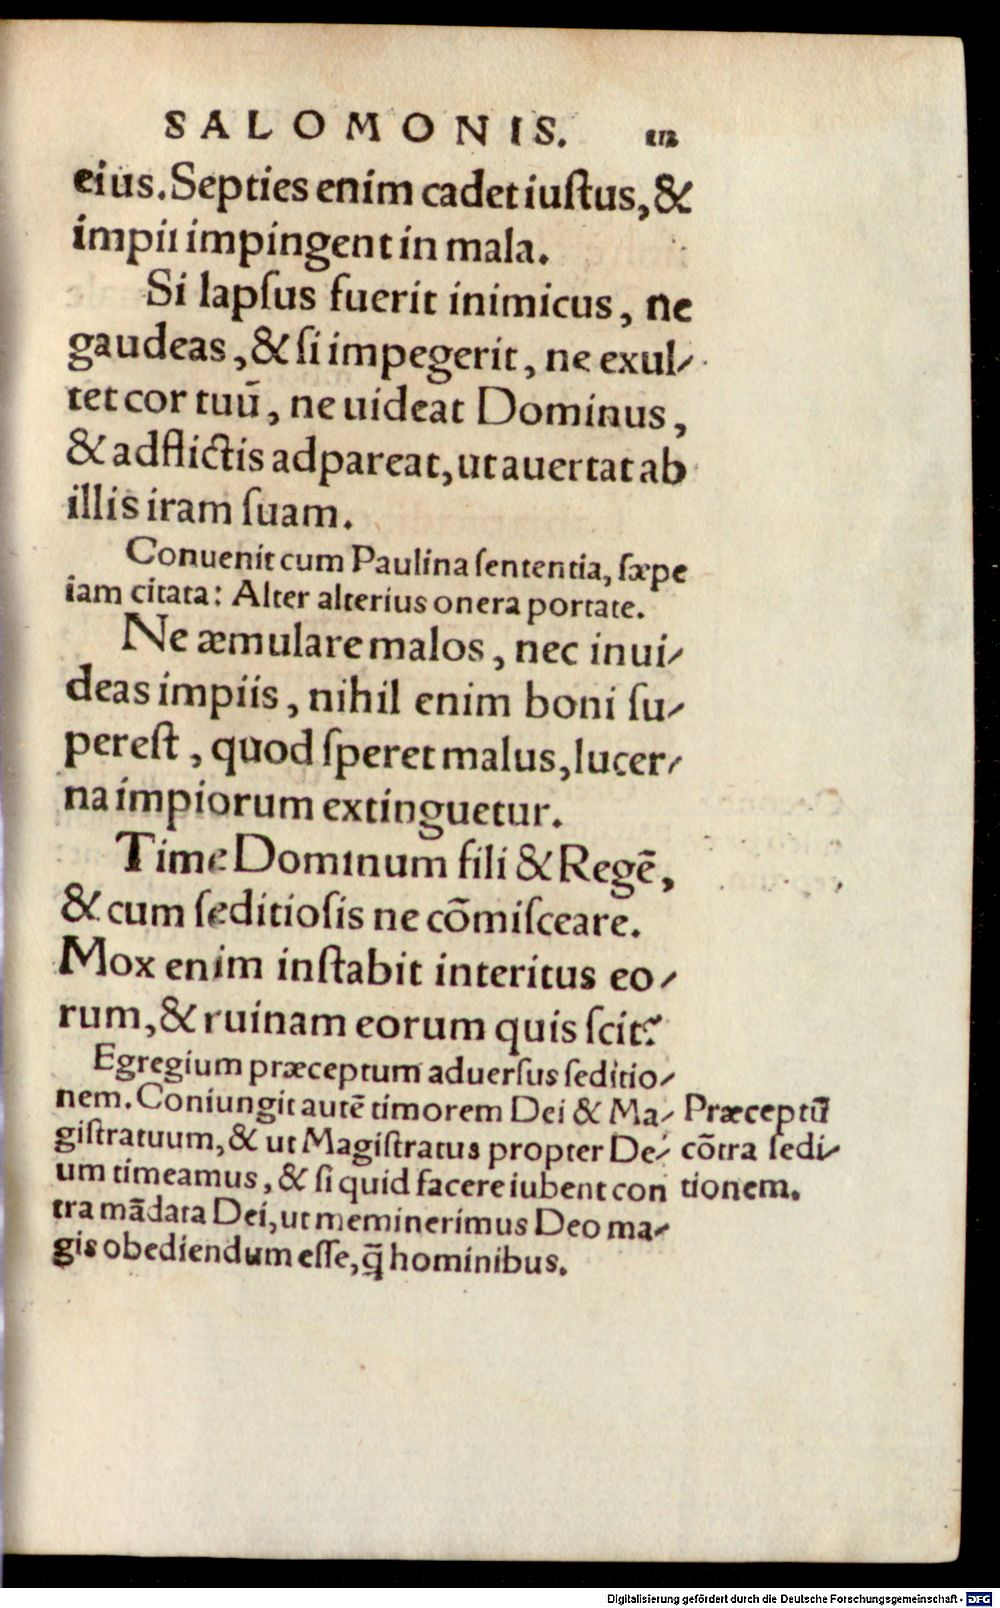 SALOMONIS.
eius. Septies enim cadet iuſtus, &
impii impingent in mala.
Si lapſus fuerit inimicus, ne
gaudeas, & ſi impegerit, ne exul⸗
tet cor tuũ, ne uideat Dominus,
& adflictis adpareat, ut auertat ab
illis iram ſuam.
Conuenit cum Paulina ſententia, ſæpe
iam citata: Alter alterius onera portate.
Ne æmulare malos, nec inui⸗
deas impiis, nihil enim boni ſu⸗
pereſt, quod ſperet malus, lucer⸗
na impiorum extinguetur.
Time Dominum fili & Regẽ,
& cum ſeditioſis ne cõmiſceare.
Mox enim inſtabit interitus eo⸗
rum, & ruinam eorum quis ſcit?
Egregium præceptum aduerſus ſeditio⸗
nem. Coniungit autẽ timorem Dei & Ma⸗
giſtratuum, & ut Magiſtratus propter De⸗
um timeamus, & ſi quid facere iubent con
tra mãdata Dei, ut meminerimus Deo ma⸗
gis obediendum eſſe, q̃ hominibus.
Præceptũ
cõtra ſedi⸗
tionem.
Digitalisierung gefördert durch die Deutsche Forschungsgemeinschaft - DFG